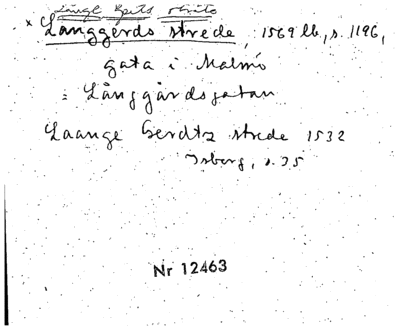 Långe Gerts stræte
x Långgerds strede, 1569 lb, s. 1196,
gata i Malmö
= Långgårdsgatan
Laange Gerdtz strede 1532
Isberg, s. 35
Nr 12463